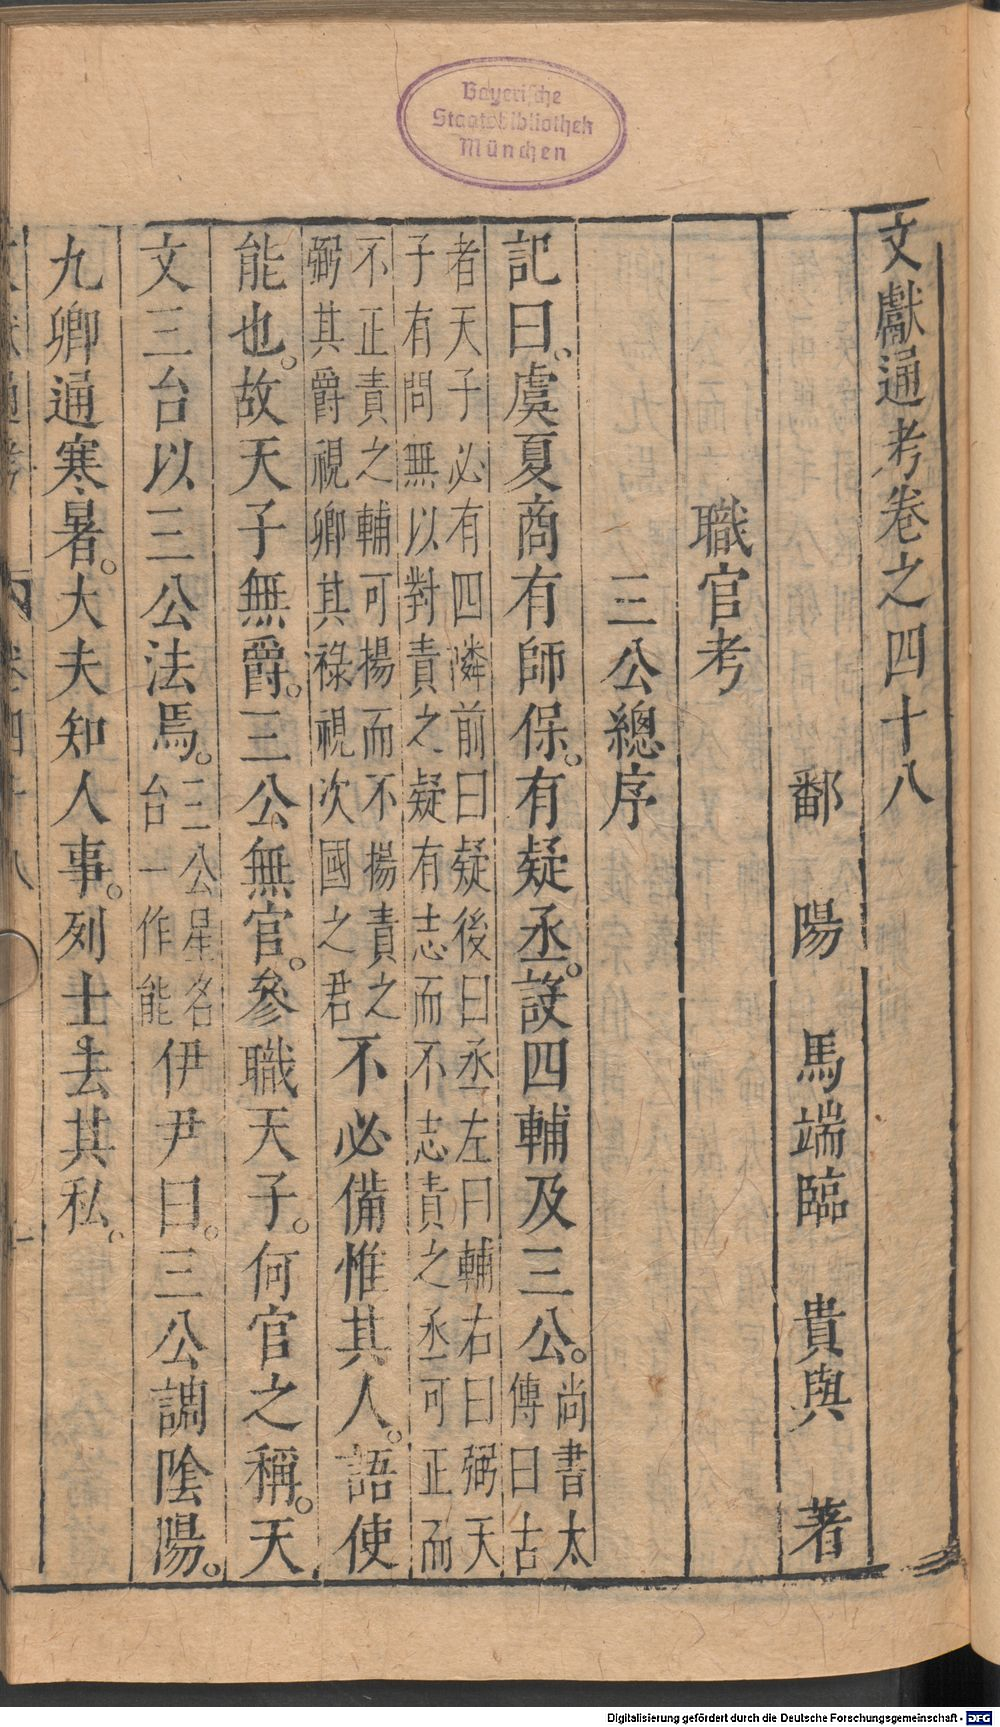 Bayerische
Staatsbibliothek
München
文獻通考卷之四十八
鄱陽 馬端臨 貴與 著
職官考
三公總序
記曰。虞夏商有師保。有疑丞。設四輔及三公。尚書太傳曰古
者天子必有四隣前曰疑後曰丞左曰輔右曰弼天子有問無以對責之疑有志而不志責之丞可正而
不正責之輔可揚而不揚責之弼其爵視卿其祿視次國之君不必備惟其人。語使
能也。故天子無爵。三公無官。參職天子。何官之稱。天
文三台以三公法焉。三公星名台一作能伊尹曰。三公調陰陽。
九卿通寒暑。大夫知人事。列士去其私。
Digitalisierung gefördert durch die Deutsche Forschungsgemeinschaft - DFG